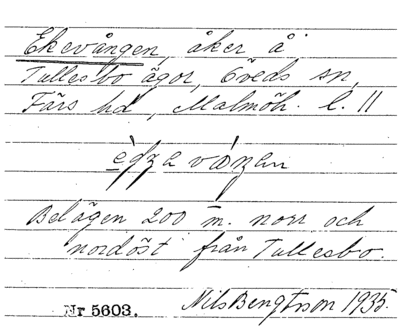 Ekevången, åker å
Tullesbo ägor, Öveds sn,
Färs hd, Malmöh. l. 11
Belägen 200 m. norr och
nordöst från Tullesbo.
Nr 5603. Nils Bengtsson 1935.